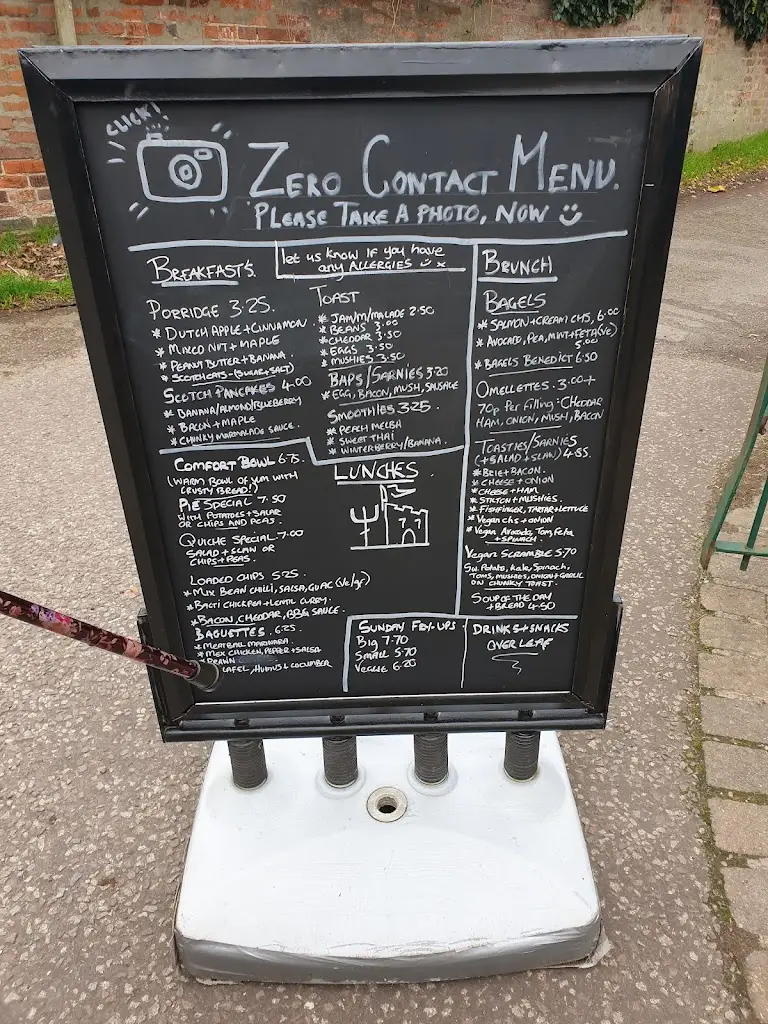 CLICK!
ZERO CONTACT MENU.
PLEASE TAKE A PHOTO, NOW
BREAKFASTS.
let us know if you have
any ALLERGIES x
PORRIDGE 3.25.
* DUTCH APPLE + CINNAMON
* MIXED NUT + MAPLE
* PEANUT BUTTER + BANANA.
* SCOTCH OATS - (SUGAR + SALT)
SCOTCH PANCAKES 4.00
* BANANA/ALMOND/BLUEBERRY
* BACON + MAPLE
* CHUNKY MARMALADE SAUCE.
TOAST
* JAM/M/MALADE 2.50
* BEANS 3.00
* CHEDDAR 3.50
* EGGS 3.50
* MUSHIES 3.50
BAPS/SARNIES 3.20
* EGG, BACON, MUSH, SAUSAGE
SMOOTHIES 3.25.
* PEACH MELBA
* SWEET THAI
* WINTERBERRY/BANANA.
BRUNCH
BAGELS
* SALMON + CREAM CHS, 6.00
* AVOCADO, PEA, MINT + FETA (VE)
5.00
* BAGELS BENEDICT 6.50
OMELLETTES. 3.00 +
70p PER FILLING: CHEDDAR
HAM, ONION, MUSH, BACON
TOASTIES/SARNIES
(+ SALAD + SLAW) 4.85.
* BRIE + BACON.
* CHEESE + ONION
* CHEESE + HAM
* STILTON + MUSHIES.
* FISHFINGER, TARTAR + LETTUCE
* Vegan chs + onion
* Vegan Avocado, Tom, Feta
+ SPINACH.
Vegan Scramble 5.70
Sw. Potato, Kale, Spinach,
TOMS, MUSHIES, ONION + GARLIC
ON CHUNKY TOAST.
SOUP OF THE DAY
+ BREAD 4.50
LUNCHES
COMFORT BOWL 6.75.
(WARM BOWL OF YUM WITH
CRUSTY BREAD!)
PIE SPECIAL 7.50
WITH POTATOES + SALAD
OR CHIPS AND PEAS.
QUICHE SPECIAL 7.00
SALAD + SLAW OR
CHIPS + PEAS.
LOADED CHIPS 5.25.
* MIX BEAN CHILLI, SALSA, GUAC (Ve/gf)
* BALTI CHICKPEA + LENTIL CURRY.
* BACON, CHEDDAR, BBQ SAUCE.
BAGUETTES. 6.25
* MEATBALL MARINARA.
* MEX CHICKEN, PEPPER + SALSA
* PRAWN
LAFEL, HUMUS & CUCUMBER
SUNDAY FRY-UPS.
Big 7.70
Small 5.70
VEGGIE 6.20
DRINKS + SNACKS
OVER LEAF